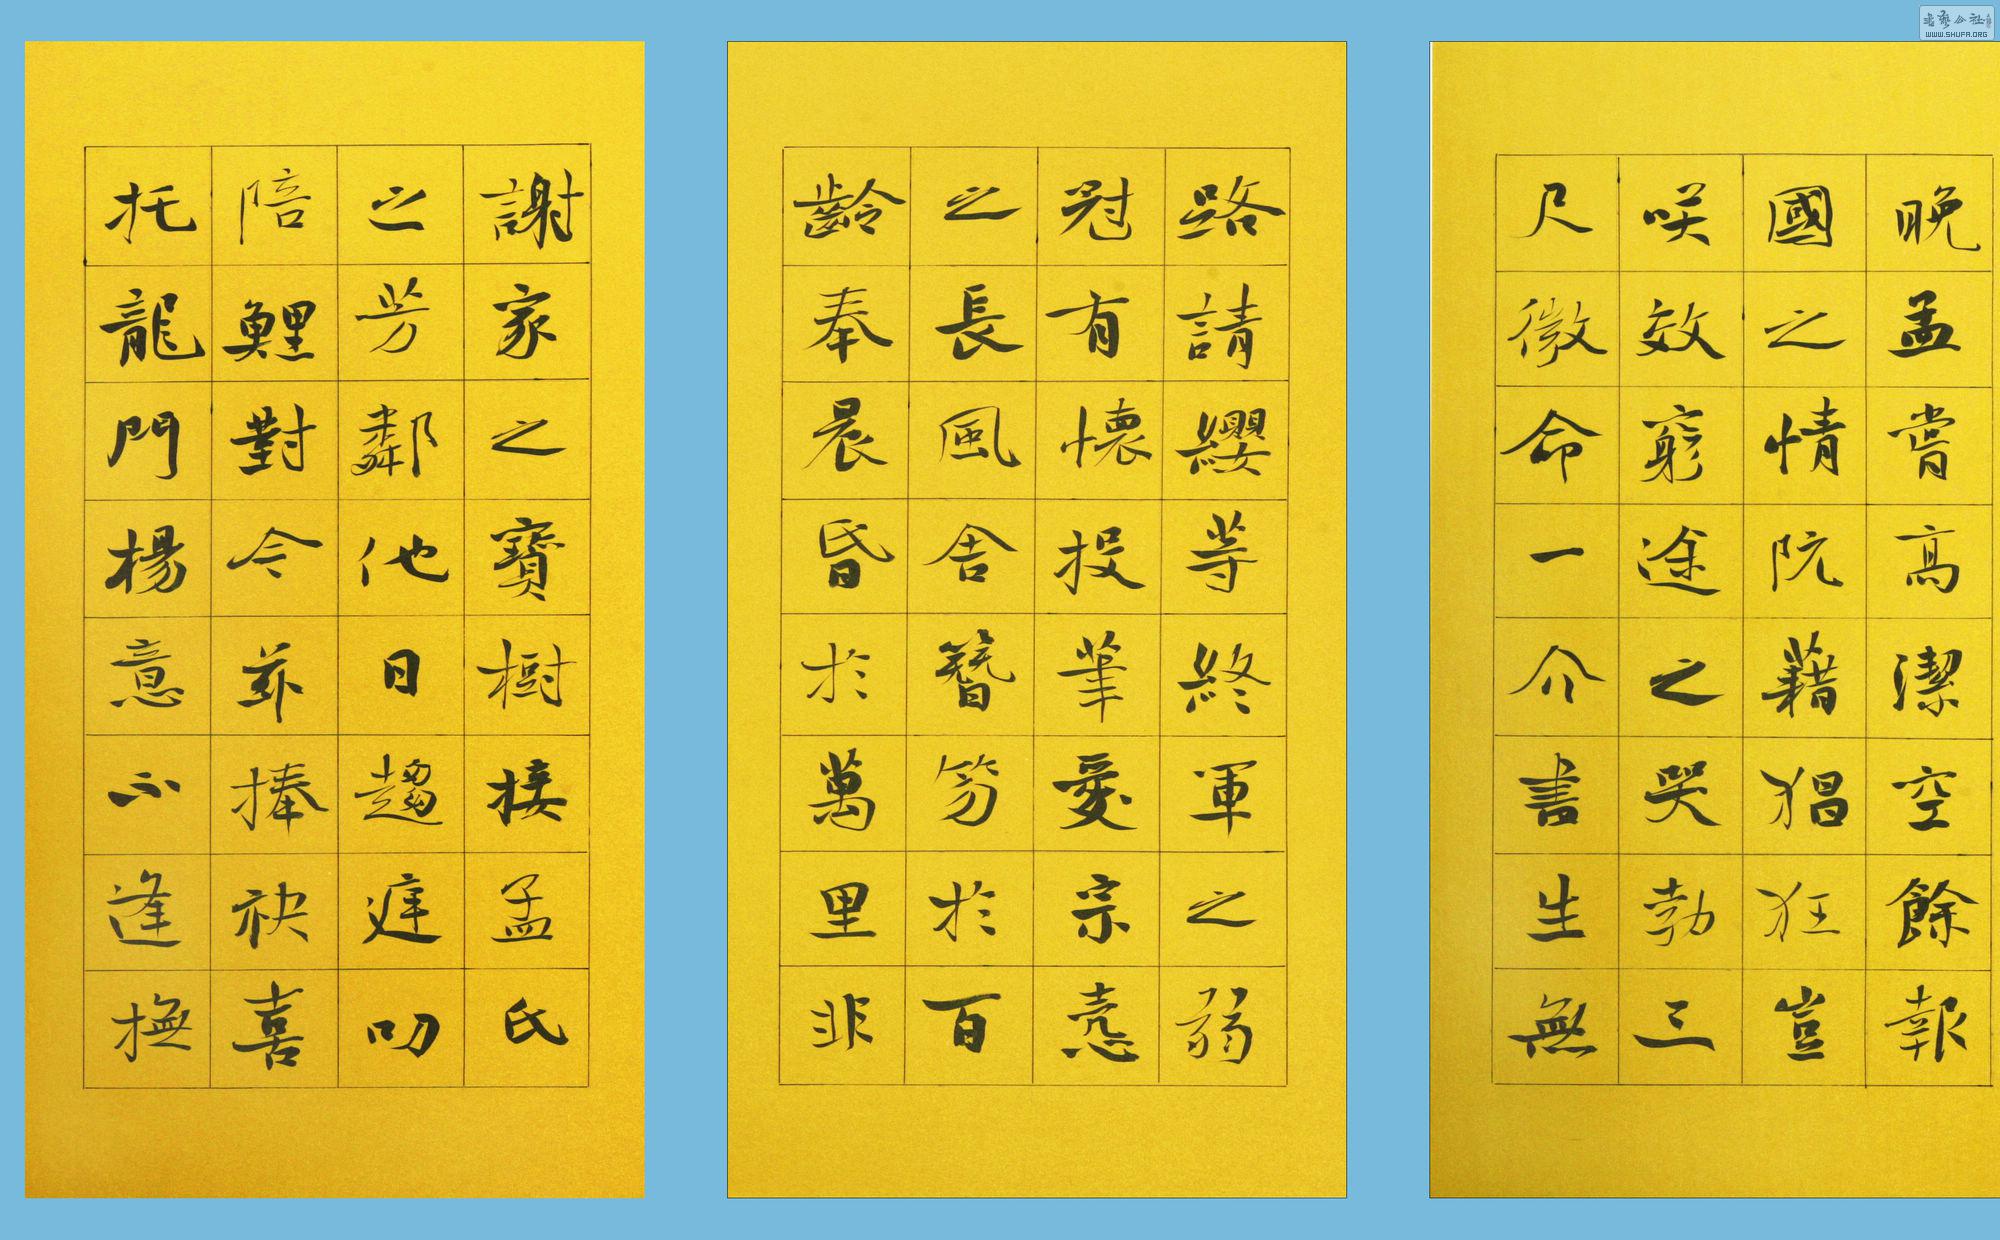 晚孟嘗高潔空餘報
國之情阮藉猖狂豈
咲效窮途之哭勃三
尺微命一介書生無
路請纓等終軍之弱
冠有懷投筆愛宗悫
之長風舍簪笏於百
齡奉晨昏於萬里非
謝家之寶樹接孟氏
之芳鄰他日趨庭叨
陪鯉對今茲捧袂喜
托龍門楊意不逢撫
書藝公社
WWW.SHUFA.ORG